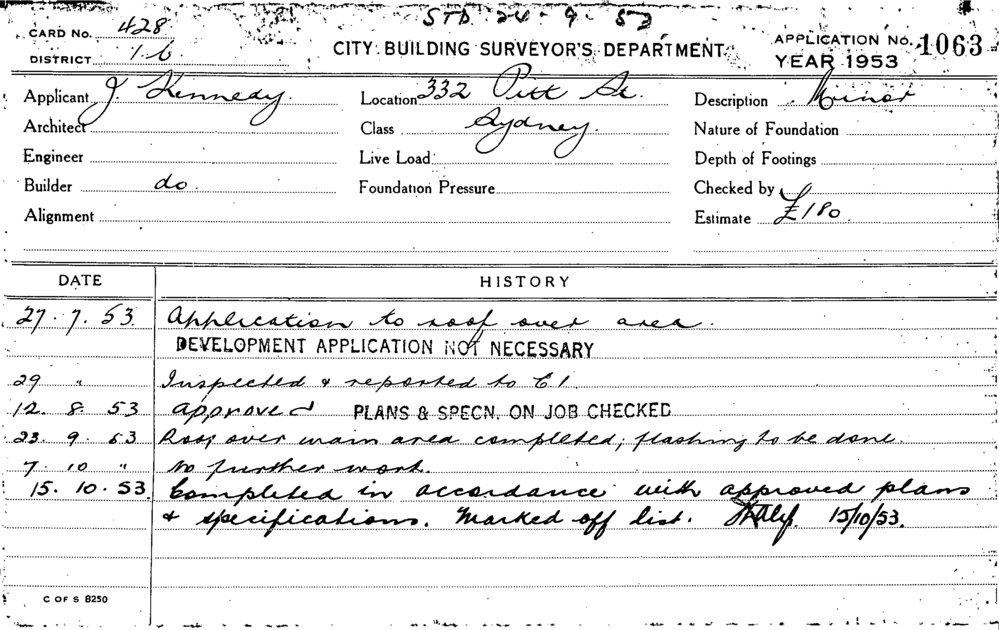 STD. 24.9.53
CARD No. 428
DISTRICT 1.b
CITY BUILDING SURVEYOR'S DEPARTMENT
APPLICATION No. 1063
YEAR 1953
Applicant J. Kennedy. Location 332 Pitt St. Description Minor
Architect Class Sydney. Nature of Foundation
Engineer Live Load Depth of Footings
Builder do. Foundation Pressure Checked by
Alignment Estimate £180
DATE HISTORY
27.7.53. Application to roof over area.
DEVELOPMENT APPLICATION NOT NECESSARY
29 " Inspected & reported to C1.
12.8.53 approved PLANS & SPECN. ON JOB CHECKED
23.9.53 Roof over main area completed; flashing to be done.
7.10 " No further work.
15.10.53. Completed in accordance with approved plans
& specifications. Marked off list. 15/10/53.
C OF S 8250